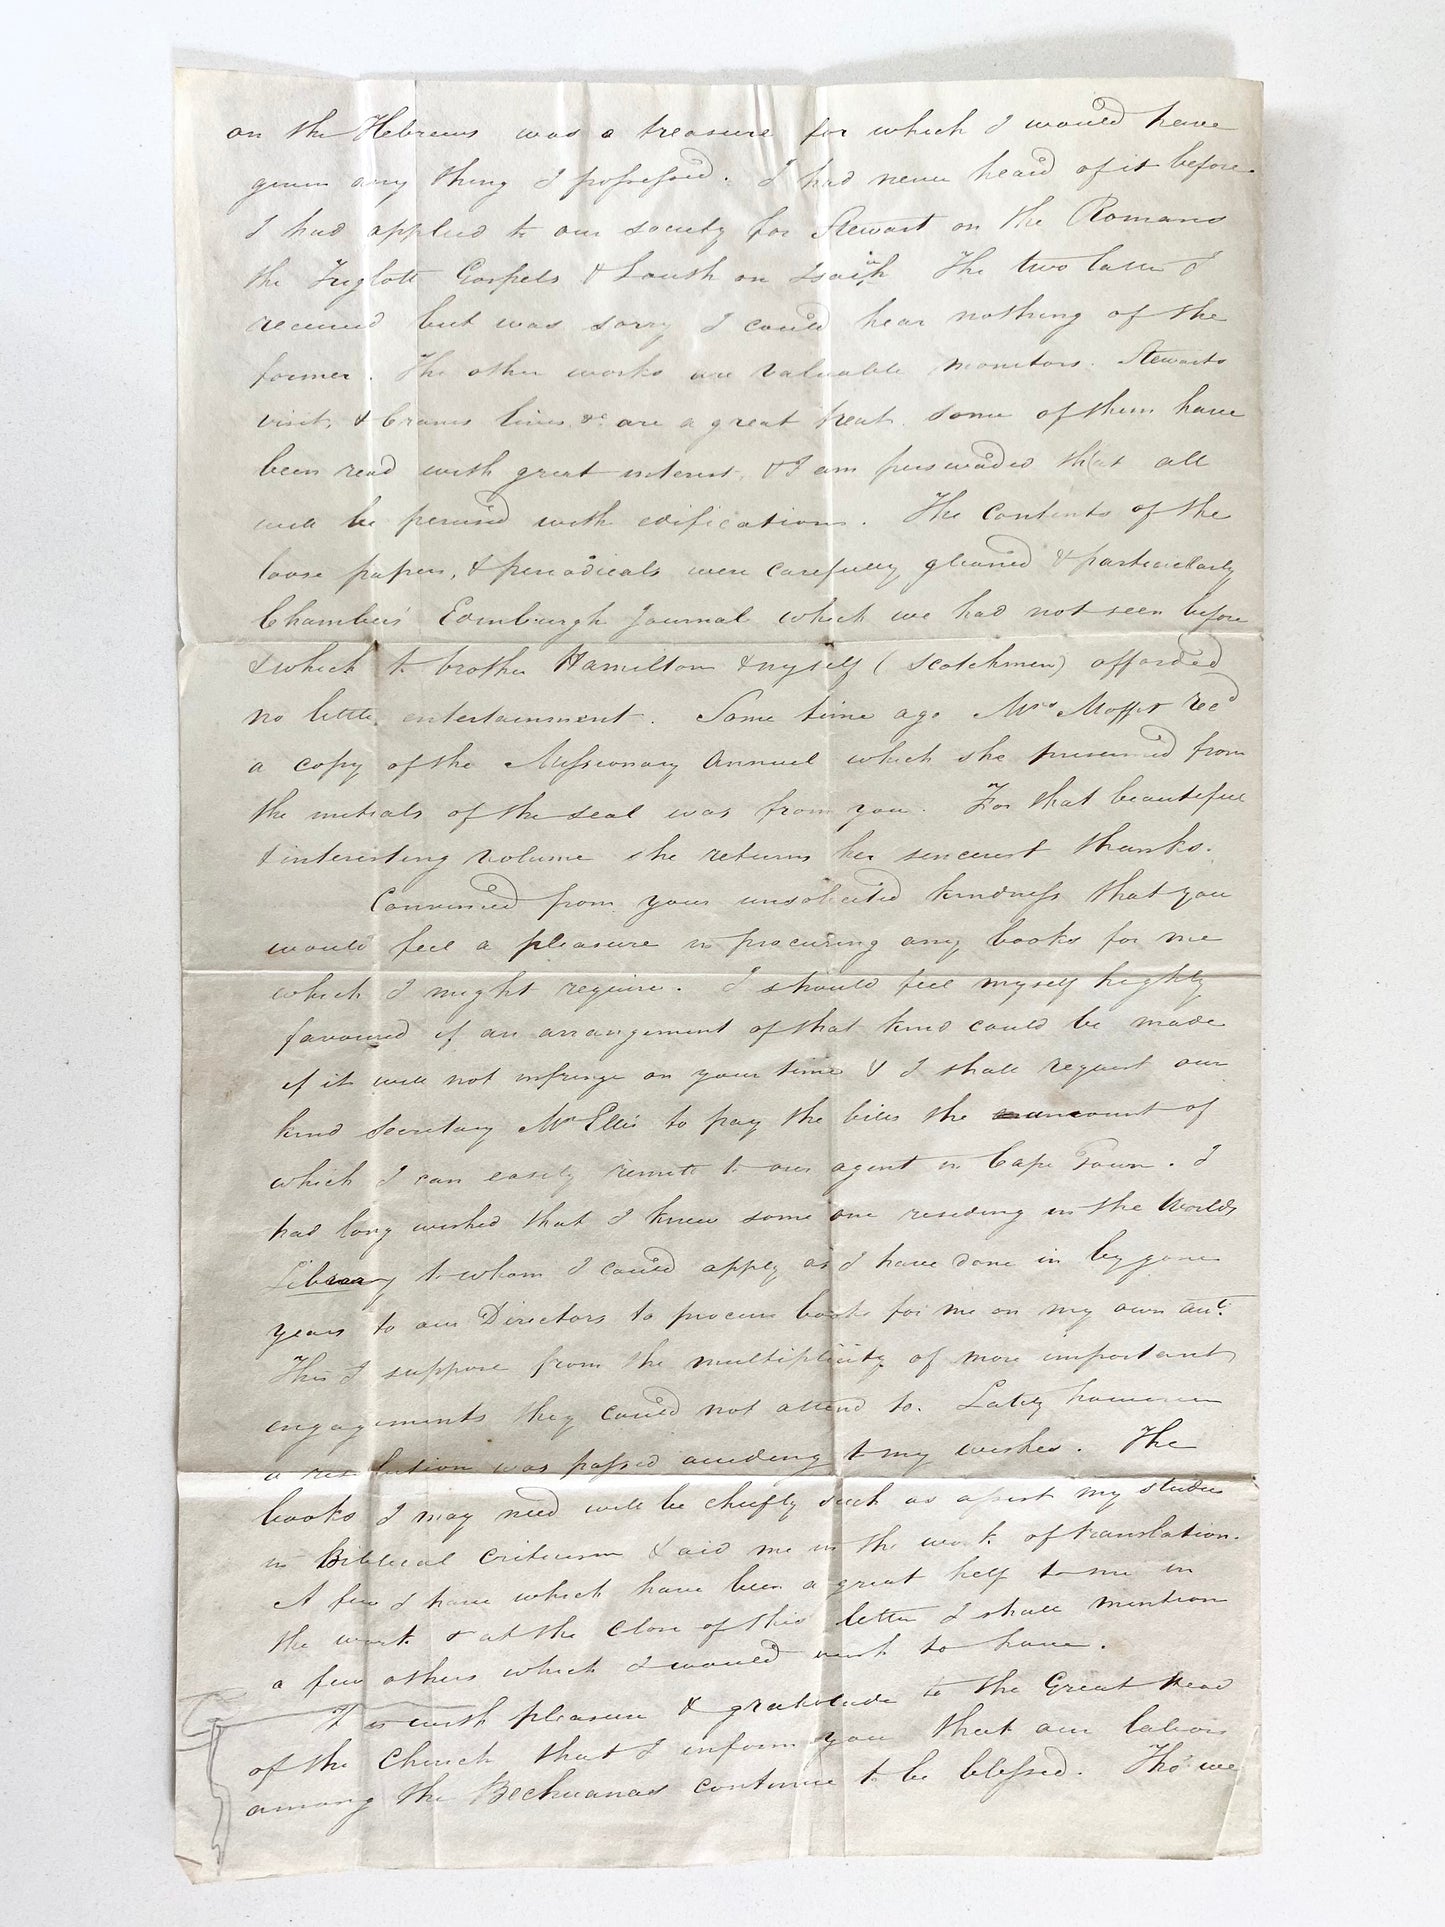 on the Hebrews was a treasure for which I would have
given any thing I possessed. I had never heard of it before
I had applied to our society for Stewart on the Romans
the Triglott Gospels & Louth on Isaiah The two latter I
received but was sorry I could hear nothing of the
former. The other works are valuable monitors. Stewarts
visit, & Crams lives &c are a great treat. Some of them have
been read with great interest, & I am perswaded that all
will be perused with edification. The contents of the
loose papers, & periodicals were carefully gleaned & particularly
Chambers' Edinburgh Journal which we had not seen before
& which to brother Hamilton & myself (Scotchmen) afforded
no little entertainment. Some time ago Mrs Moffat recd
a copy of the Missionary Annual which she presumed from
the initials of the seal was from you. For that beautiful
& interesting volume she returns her sincerest thanks.
Convinced from your unsolicited kindness that you
would feel a pleasure in procuring any books for me
which I might require. I should feel myself highly
favoured if an arrangement of that kind could be made
if it will not infringe on your time & I shall request our
kind Secretary Mr Ellis to pay the bills the amount of
which I can easily remitt to our agent in Cape Town. I
had long wished that I knew some one residing in the Worlds
Library to whom I could apply as I have done in by gone
years to our Directors to procure books for me on my own act.
This I suppose from the multiplicity of more important
engagements they could not attend to. Lately however
a resolution was passed acceding to my wishes. The
books I may need will be chiefly such as assist my studies
in Biblical criticism & aid me in the work of translation.
A few I have which have been a great help to me in
the work & at the close of this letter I shall mention
a few others which I would wish to have.
It is with pleasure & gratitude to the Great Head
of the Church that I inform you that our labours
among the Bechuanas continue to be blessed. Tho' we